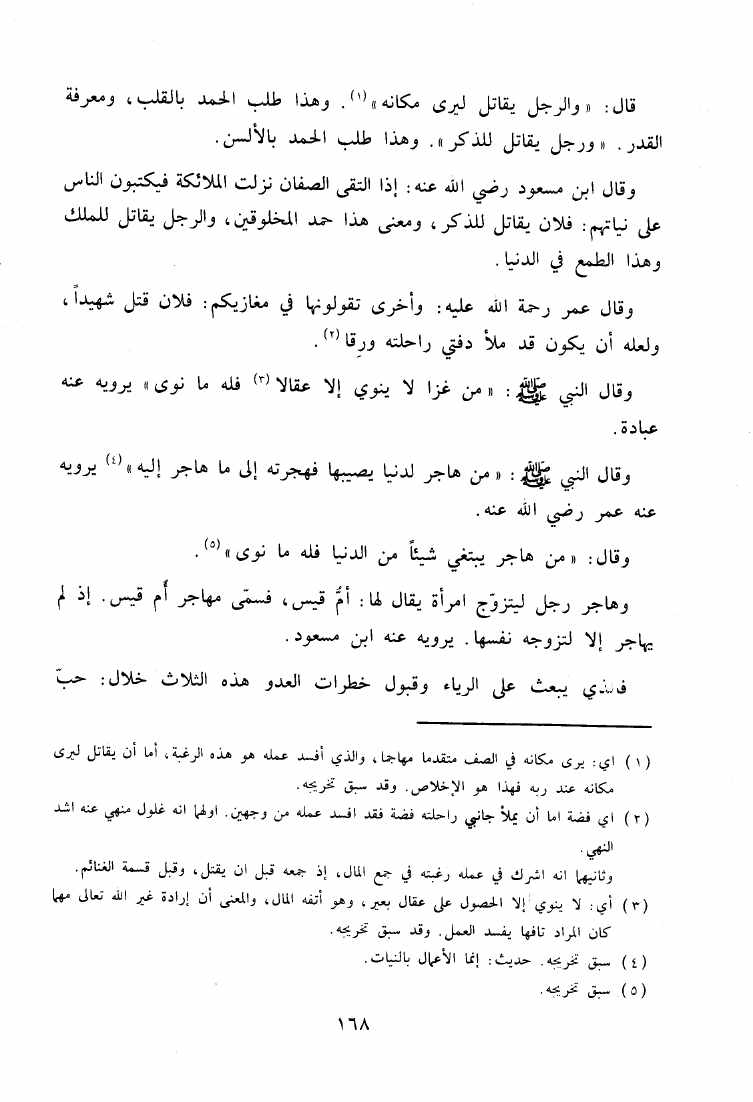 قال: «والرجل يقاتل ليرى مكانه»(١). وهذا طلب الحمد بالقلب، ومعرفة
القدر. «ورجل يقاتل للذكر». وهذا طلب الحمد بالألسن.
وقال ابن مسعود رضي الله عنه: إذا التقى الصفان نزلت الملائكة فيكتبون الناس
على نياتهم: فلان يقاتل للذكر، ومعنى هذا حمد المخلوقين، والرجل يقاتل للملك
وهذا الطمع في الدنيا.
وقال عمر رحمة الله عليه: وأخرى تقولونها في مغازيكم: فلان قتل شهيداً،
ولعله أن يكون قد ملأ دفتي راحلته ورقا(٢).
وقال النبي ﷺ: «من غزا لا ينوي إلا عقالا(٣) فله ما نوى» يرويه عنه
عبادة.
وقال النبي ﷺ: «من هاجر لدنيا يصيبها فهجرته إلى ما هاجر إليه»(٤) يرويه
عنه عمر رضي الله عنه.
وقال: «من هاجر يبتغي شيئاً من الدنيا فله ما نوى»(٥).
وهاجر رجل ليتزوّج امرأة يقال لها: أمُّ قيس، فسمّى مهاجر أم قيس. إذ لم
يهاجر إلا لتزوجه نفسها. يرويه عنه ابن مسعود.
فالذي يبعث على الرياء وقبول خطرات العدو هذه الثلاث خلال: حبّ
(١) اي: يرى مكانه في الصف متقدما مهاجما، والذي أفسد عمله هو هذه الرغبة، أما أن يقاتل ليرى
مكانه عند ربه فهذا هو الإخلاص. وقد سبق تخريجه.
(٢) اي فضة اما أن يملأ جانبي راحلته فضة فقد افسد عمله من وجهين. اولهما انه غلول منهي عنه اشد
النهي.
وثانيهما انه اشرك في عمله رغبته في جمع المال، إذ جمعه قبل ان يقتل، وقبل قسمة الغنائم.
(٣) أي: لا ينوي إلا الحصول على عقال بعير، وهو أتفه المال، والمعنى أن إرادة غير الله تعالى مهما
كان المراد تافها يفسد العمل. وقد سبق تخريجه.
(٤) سبق تخريجه. حديث: إنما الأعمال بالنيات.
(٥) سبق تخريجه.
١٦٨